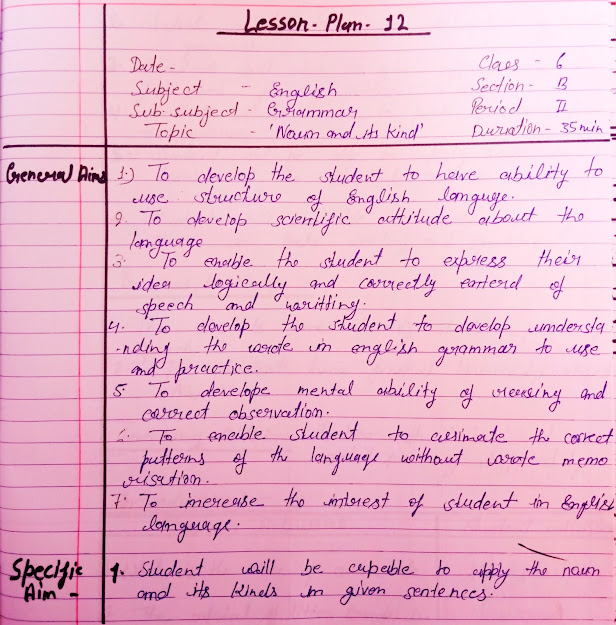 Lesson - Plan - 12
Date -
Class - 6
Subject - English
Section - B
Sub-subject - Grammar
Period II
Topic - 'Noun and its kind'
Duration - 35 min
General Aims
1.) To develop the student to have ability to
use structure of English languge.
2. To develop scientific attitude about the
language
3. To enable the student to express their
idea logically and correctly of
speech and writting.
4. To develop the student to develop understa
-nding the in english grammar to use
and practice.
5. To develope mental ability of and
correct observation.
6. To enable student to the correct
putterns of the language without memo
risation.
7. To increase the interest of student in English
language.
Specific
Aim -
1. Student will be capable to apply the noun
and its kinds in given sentences.